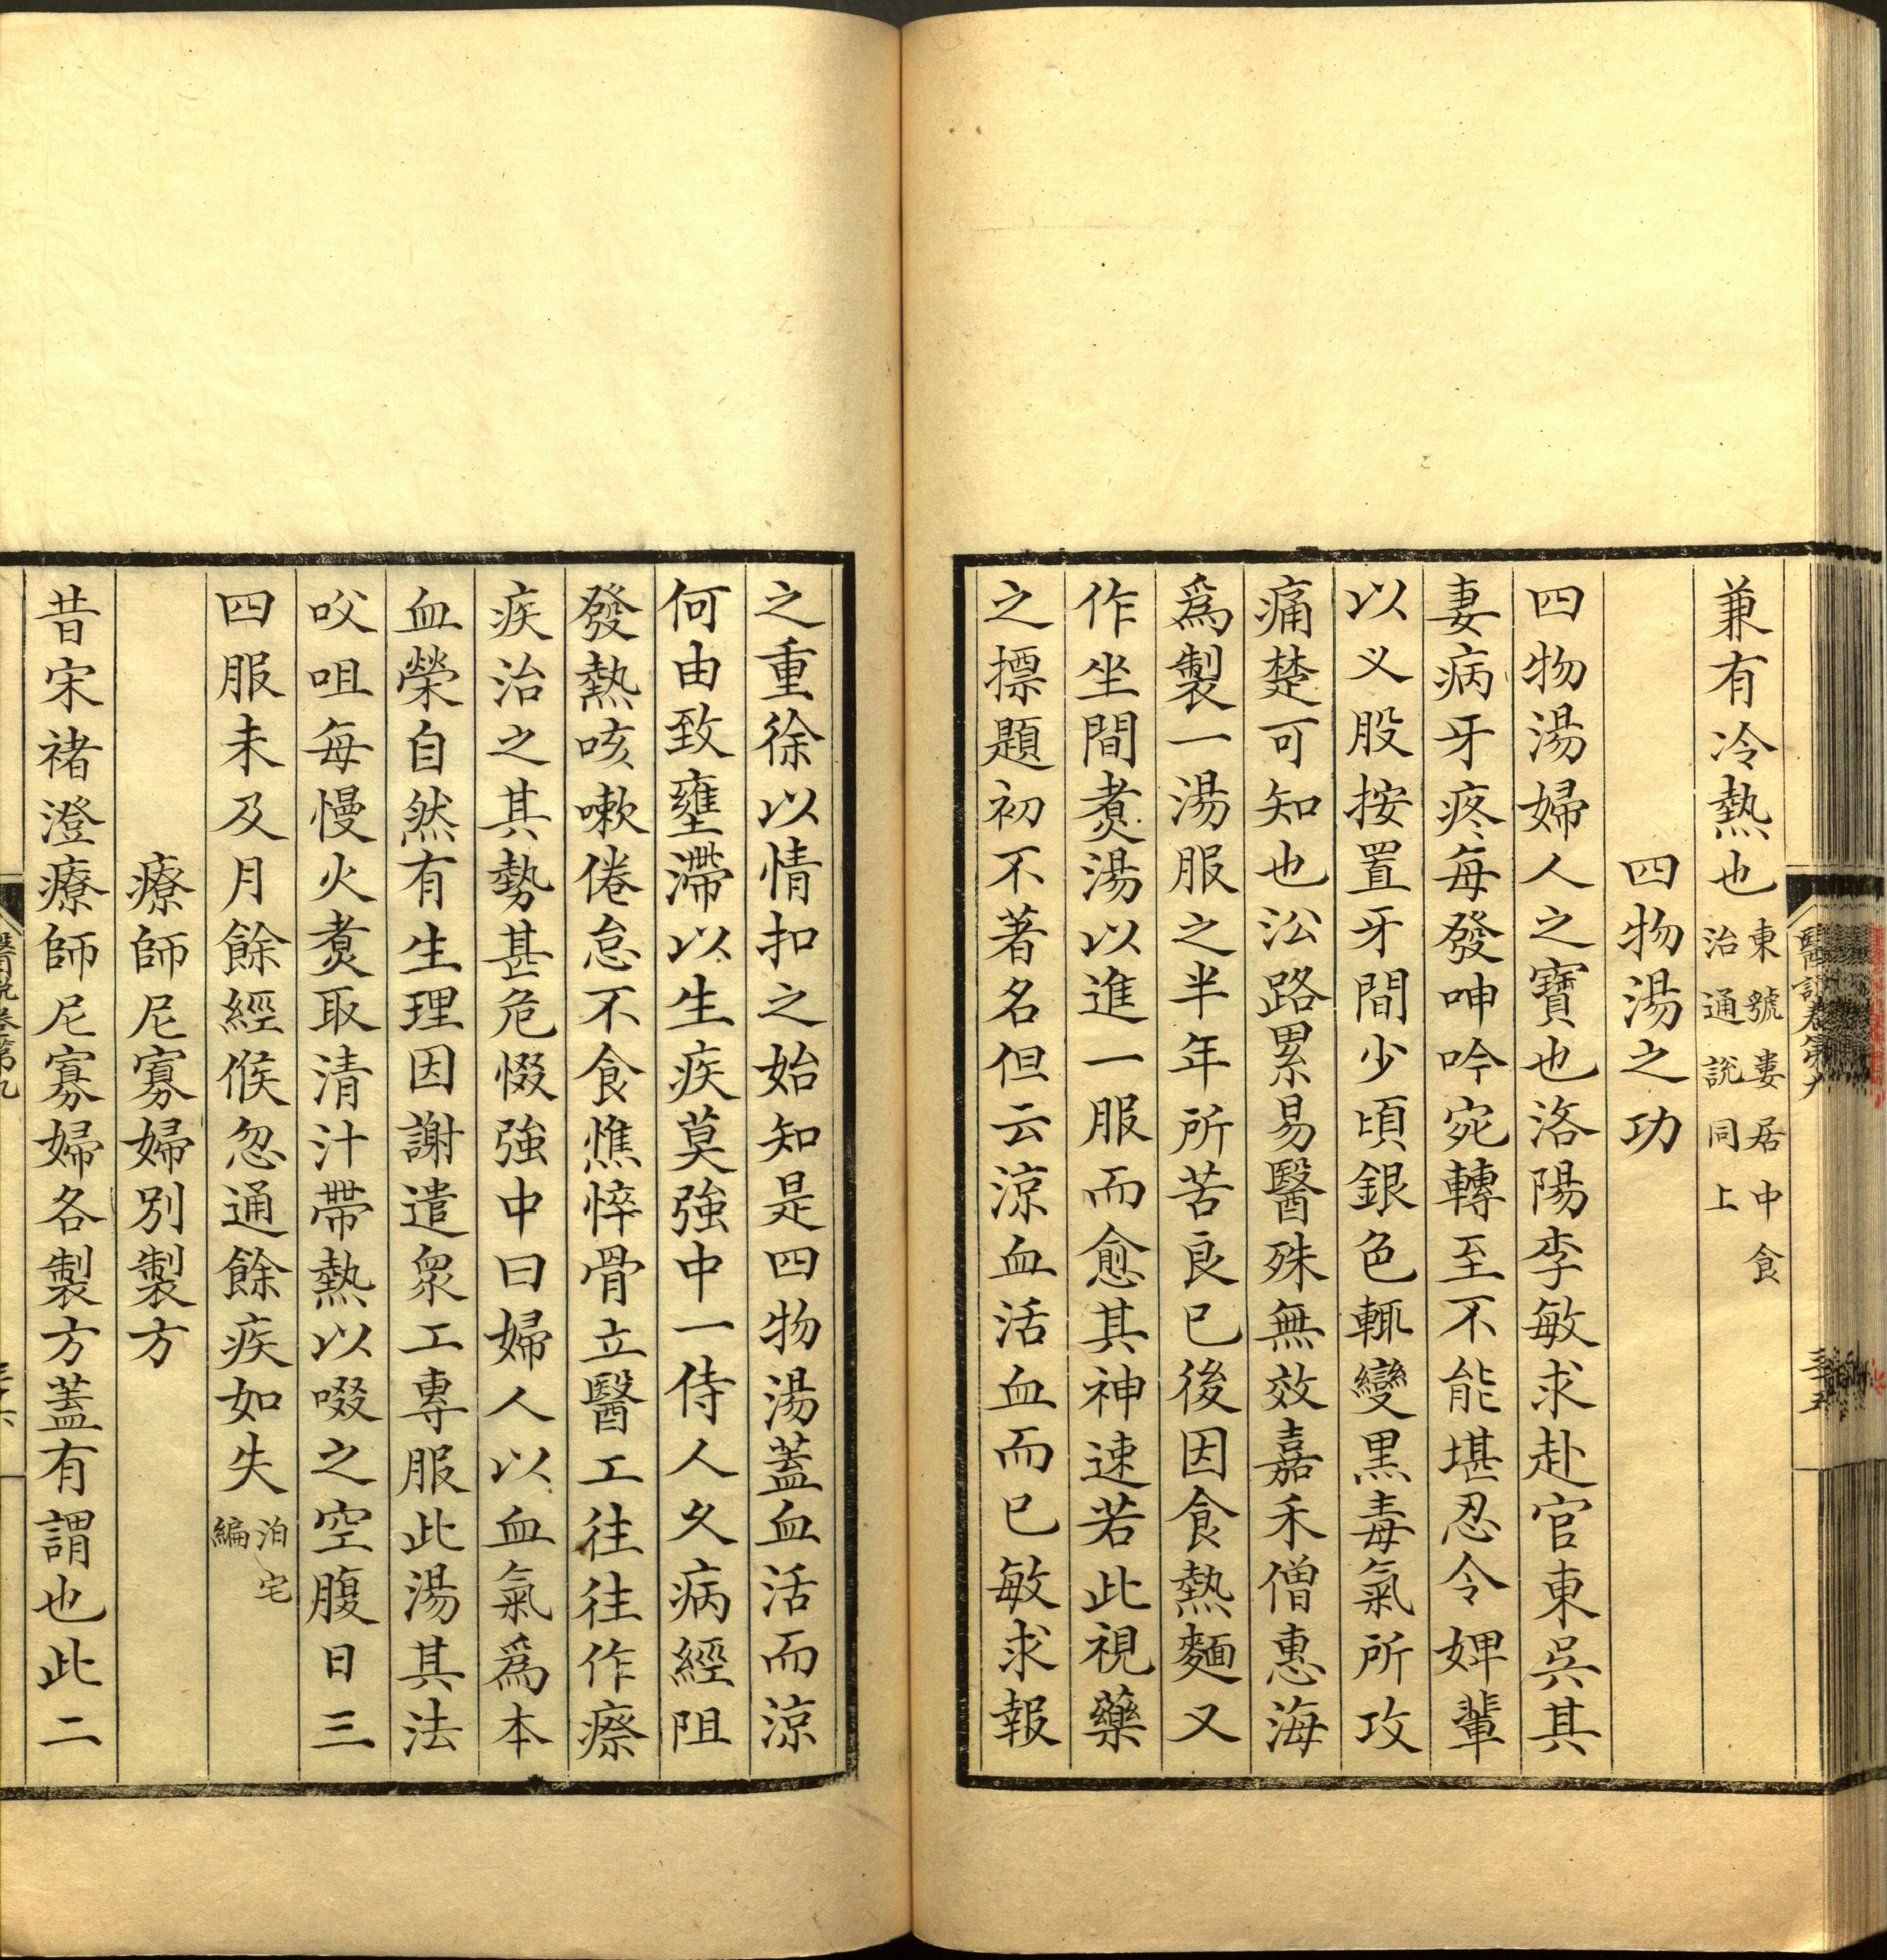 兼有冷熱也東號婁居中食治通說同上
四物湯之功
四物湯婦人之寶也洛陽李敏求赴官東呉其
妻病牙疼每發呻吟宛轉至不能堪忍令婢輩
以义股按置牙間少頃銀色輒變黒毒氣所攻
痛楚可知也㳂路累易醫殊無效嘉禾僧惠海
爲製一湯服之半年所苦良已後因食熱麵又
作坐間煑湯以進一服而愈其神速若此視藥
之摽題初不著名但云涼血活血而已敏求報
之重徐以情扣之始知是四物湯蓋血活而涼
何由致壅滯以生疾莫強中一侍人久病經阻
發熱咳嗽倦怠不食憔悴骨立醫工往往作瘵
疾治之其勢甚危惙強中曰婦人以血氣爲本
血榮自然有生理因謝遣衆工專服此湯其法
㕮咀每慢火煑取清汁帶熱以啜之空腹日三
四服未及月餘經候忽通餘疾如失泊宅編
療師尼寡婦別製方
昔宋褚澄療師尼寡婦各製方蓋有謂也此二
醫說卷第九